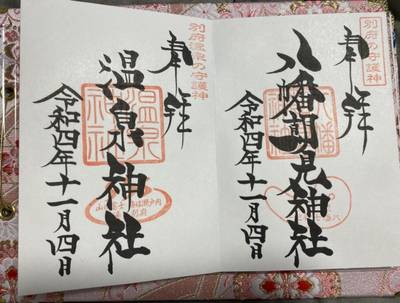 別府の守護神
奉拝
八幡朝見神社
令和四年十一月四日
別府温泉の守護神
奉拝
温泉神社
温泉神社
令和四年十一月四日